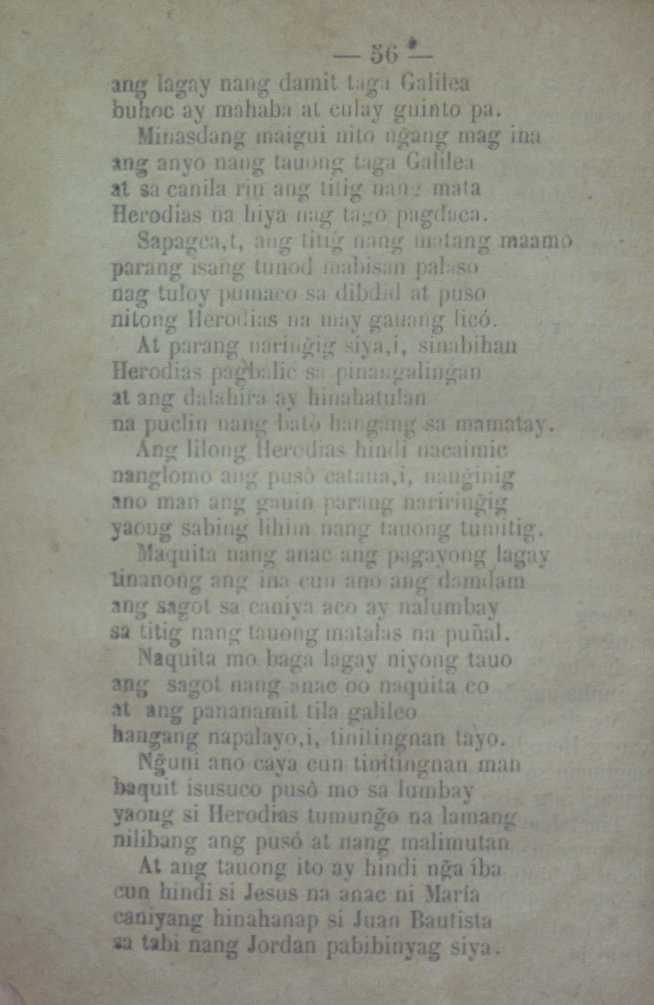 — 56 —
ang lagay nang damit taga Galilea
buhoc ay mahaba at culay guinto pa.
Minasdang maigui nito ng̃ang mag ina
ang anyo nang tauong taga Galilea
at sa canila rin ang titig nang mata
Herodias na hiya nag tago pagdaca.
Sapagca,t, ang titig nang matang maamo
parang isang tunod mabisan palaso
nag tuloy pumaco sa dibdid at puso
nitong Herodias na may gauang licó.
At parang naring̃ig siya,i, sinabihan
Herodias pagbalic sa pinangaling̃an
at ang dalahira ay hinahatulan
na puclin nang bató hangang sa mamatay.
Ang lilong Herodias hindi nacaimic
nanglomo ang pusó cataua,i, nang̃inig
ano man ang gauin parang naririn͠gig
yaong sabing lihim nang tauong tumitig.
Maquita nang anac ang pagayong lagay
tinanong ang ina cun ano ang damdam
ang sagot sa caniya aco ay nalumbay
sa titig nang tauong matalas na puñal.
Naquita mo baga lagay niyong tauo
ang sagot nang anac oo naquita co
at ang pananamit tila galileo
hangang napalayo,i, tinitingnan tayo.
Ng̃uni ano caya cun tinitingnan man
baquit isusuco pusó mo sa lumbay
yaong si Herodias tumung̃o na lamang
nilibang ang pusó at nang malimutan
At ang tauong ito ay hindi ng̃a iba
cun hindi si Jesus na anac ni María
caniyang hinahanap si Juan Bautista
sa tabi nang Jordan pabibinyag siya.